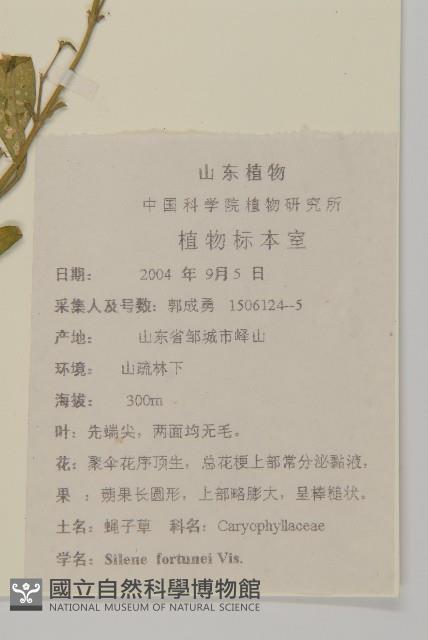 山东植物
中国科学院植物研究所
植物标本室
日期： 2004 年 9月5 日
采集人及号数：郭成勇 1506124--5
产地： 山东省邹城市峄山
环境： 山疏林下
海拔： 300m
叶：先端尖，两面均无毛。
花：聚伞花序顶生，总花梗上部常分泌黏液，
果 ：蒴果长圆形，上部略膨大，呈棒槌状。
土名：蝇子草 科名：Caryophyllaceae
学名：Silene fortunei Vis.
國立自然科學博物館
NATIONAL MUSEUM OF NATURAL SCIENCE